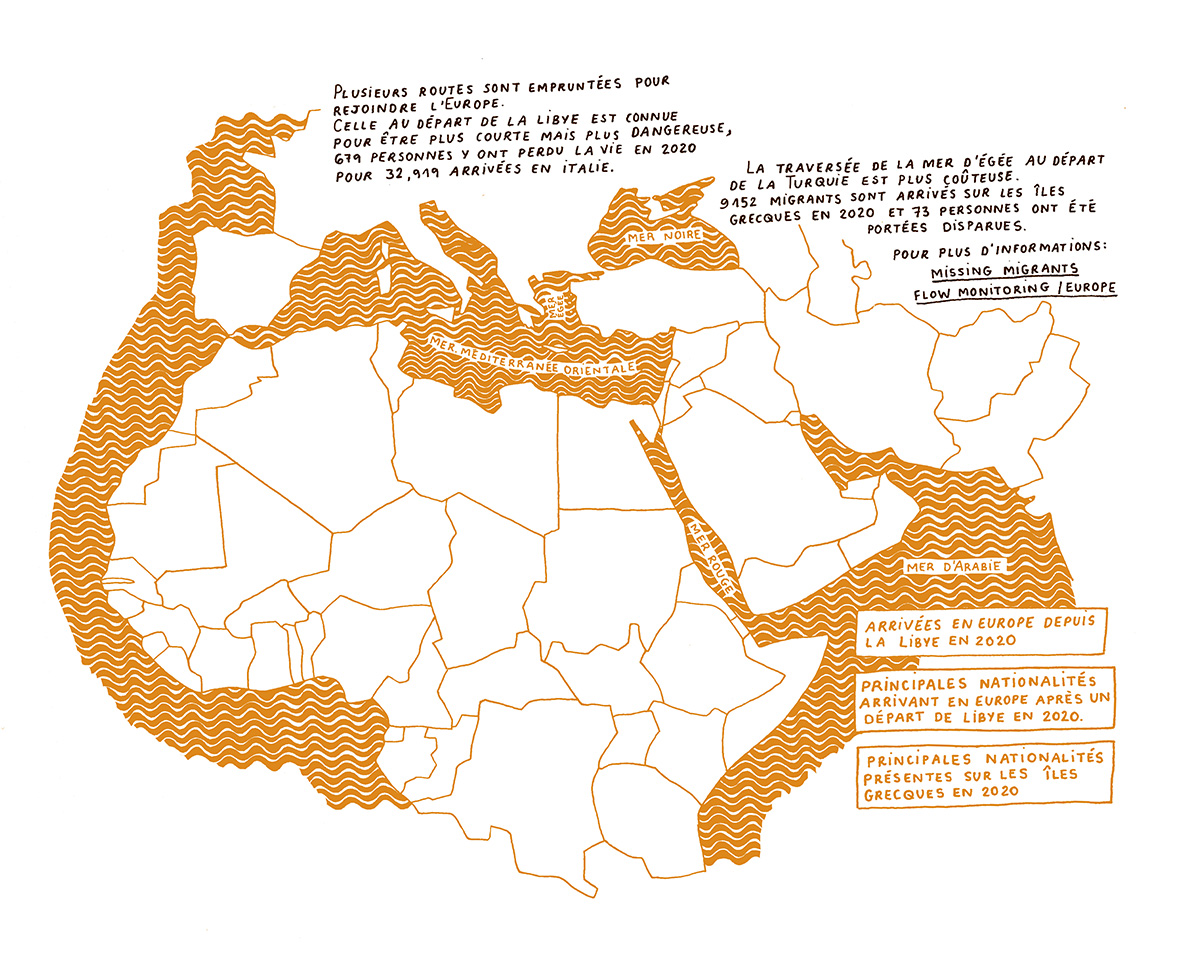 PLUSIEURS ROUTES SONT EMPRUNTÉES POUR
REJOINDRE L'EUROPE.
CELLE AU DÉPART DE LA LIBYE EST CONNUE
POUR ÊTRE PLUS COURTE MAIS PLUS DANGEREUSE,
679 PERSONNES Y ONT PERDU LA VIE EN 2020
POUR 32,919 ARRIVÉES EN ITALIE.
LA TRAVERSÉE DE LA MER D'ÉGÉE AU DÉPART
DE LA TURQUIE EST PLUS COÛTEUSE.
9152 MIGRANTS SONT ARRIVÉS SUR LES ÎLES
GRECQUES EN 2020 ET 73 PERSONNES ONT ÉTÉ
PORTÉES DISPARUES.
POUR PLUS D'INFORMATIONS:
MISSING MIGRANTS
FLOW MONITORING / EUROPE
MER NOIRE
MER
EGÉE
MER. MEDITERRANÉE ORIENTALE
MER ROUGE
MER D'ARABIE
ARRIVÉES EN EUROPE DEPUIS
LA LIBYE EN 2020
PRINCIPALES NATIONALITÉS
ARRIVANT EN EUROPE APRÈS UN
DÉPART DE LIBYE EN 2020.
PRINCIPALES NATIONALITÉS
PRÉSENTES SUR LES ÎLES
GRECQUES EN 2020